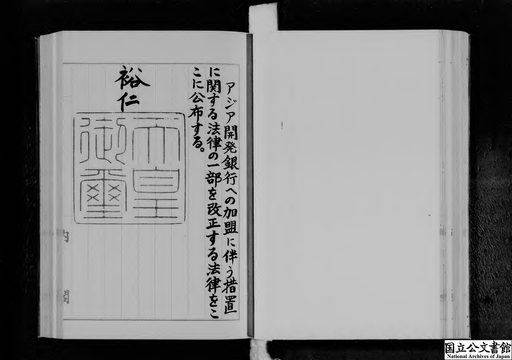 アジア開発銀行への加盟に伴う措置
に関する法律の一部を改正する法律をこ
こに公布する。
裕仁
天皇
御璽
内閣
国立公文書館
National Archives of Japan